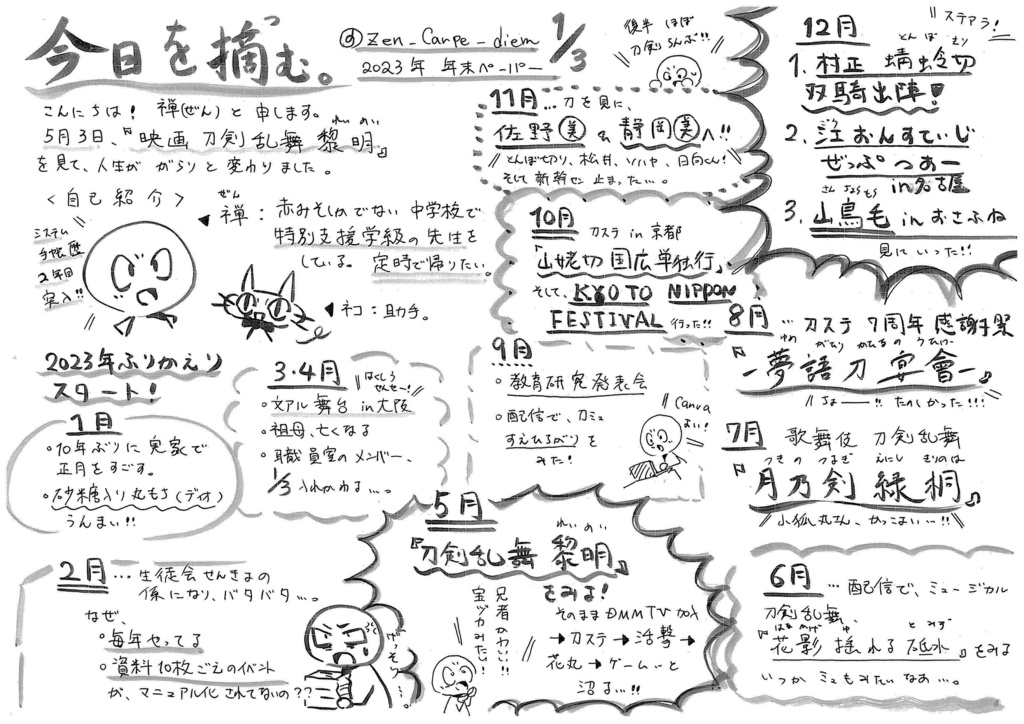 今日を摘む。
@zen_carpe_diem
2023年 年末ペーパー
1/3
こんにちは! 禅(ぜん)と申します。
5月3日、『映画 刀剣乱舞 黎明』
れいめい
を見て、人生が がらりと変わりました。
<自己紹介>
システム
手帳歴
2年目
突入!!
ぜん
◀禅:赤みそしかでない中学校で
特別支援学級の先生を
している。定時で帰りたい。
◀ネコ:助手。
2023年ふりかえり
スタート!
1月
・10年ぶりに実家で
正月をすごす。
・砂糖入り丸もち(デオ)
うんまい!!
2月…生徒会せんきょの
係になり、バタバタ…。
なぜ、
・毎年やってる
・資料10枚ごえのイベント
が、マニュアル化されてないの??
げっそり…。
3・4月
はくしゅう
せんせー!
・文アル舞台 in 大阪
・祖母、亡くなる
・職員室のメンバー、
1/3 入れかわる…。
5月
れいめい
『刀剣乱舞 黎明』
をみる!
そのままDMMTV加入
→刀ステ→活撃→
花丸→ゲームいと
沼る…!!
兄者かわいい!!
宝ヅカみたい!
6月…配信で、ミュージカル
刀剣乱舞、
はなかげ ゆ とみず
『花影 揺れる 砥水』をみる
いつか ミュもみたいなあ…。
7月 歌舞伎 刀剣乱舞
つきの つるぎ えにしの きりのは
『月乃剣 縁桐』
小狐丸さん、かっこよい…!!
8月…刀ステ 7周年 感謝祭
ゆめ がたり かたなの うたげ
『-夢語刀宴會-』
ちょー!! たのしかった!!!
9月
・教育研究発表会
・配信で、刀ミュ
すえひろがりを
みた!
Canva
よい!
10月
刀ステ in 京都
『山姥切国広単独行』
そして、KYOTO NIPPON
FESTIVAL 行った!!
後半 ほぼ
刀剣らんぶ!!
11月…刀を見に、
佐野美&静岡美へ!!
とんぼ切り、松井、ソハヤ、日向くん!
そして新幹セン止まった…。
12月
ステアラ!
とんぼ きり
1. 村正 蜻蛉切
双騎出陣!
ごう
2. 江 おんすていじ
ぜっぷ つあー
in 名古屋
さんちょうもう
3. 山鳥毛 in おさふね
見にいった!!